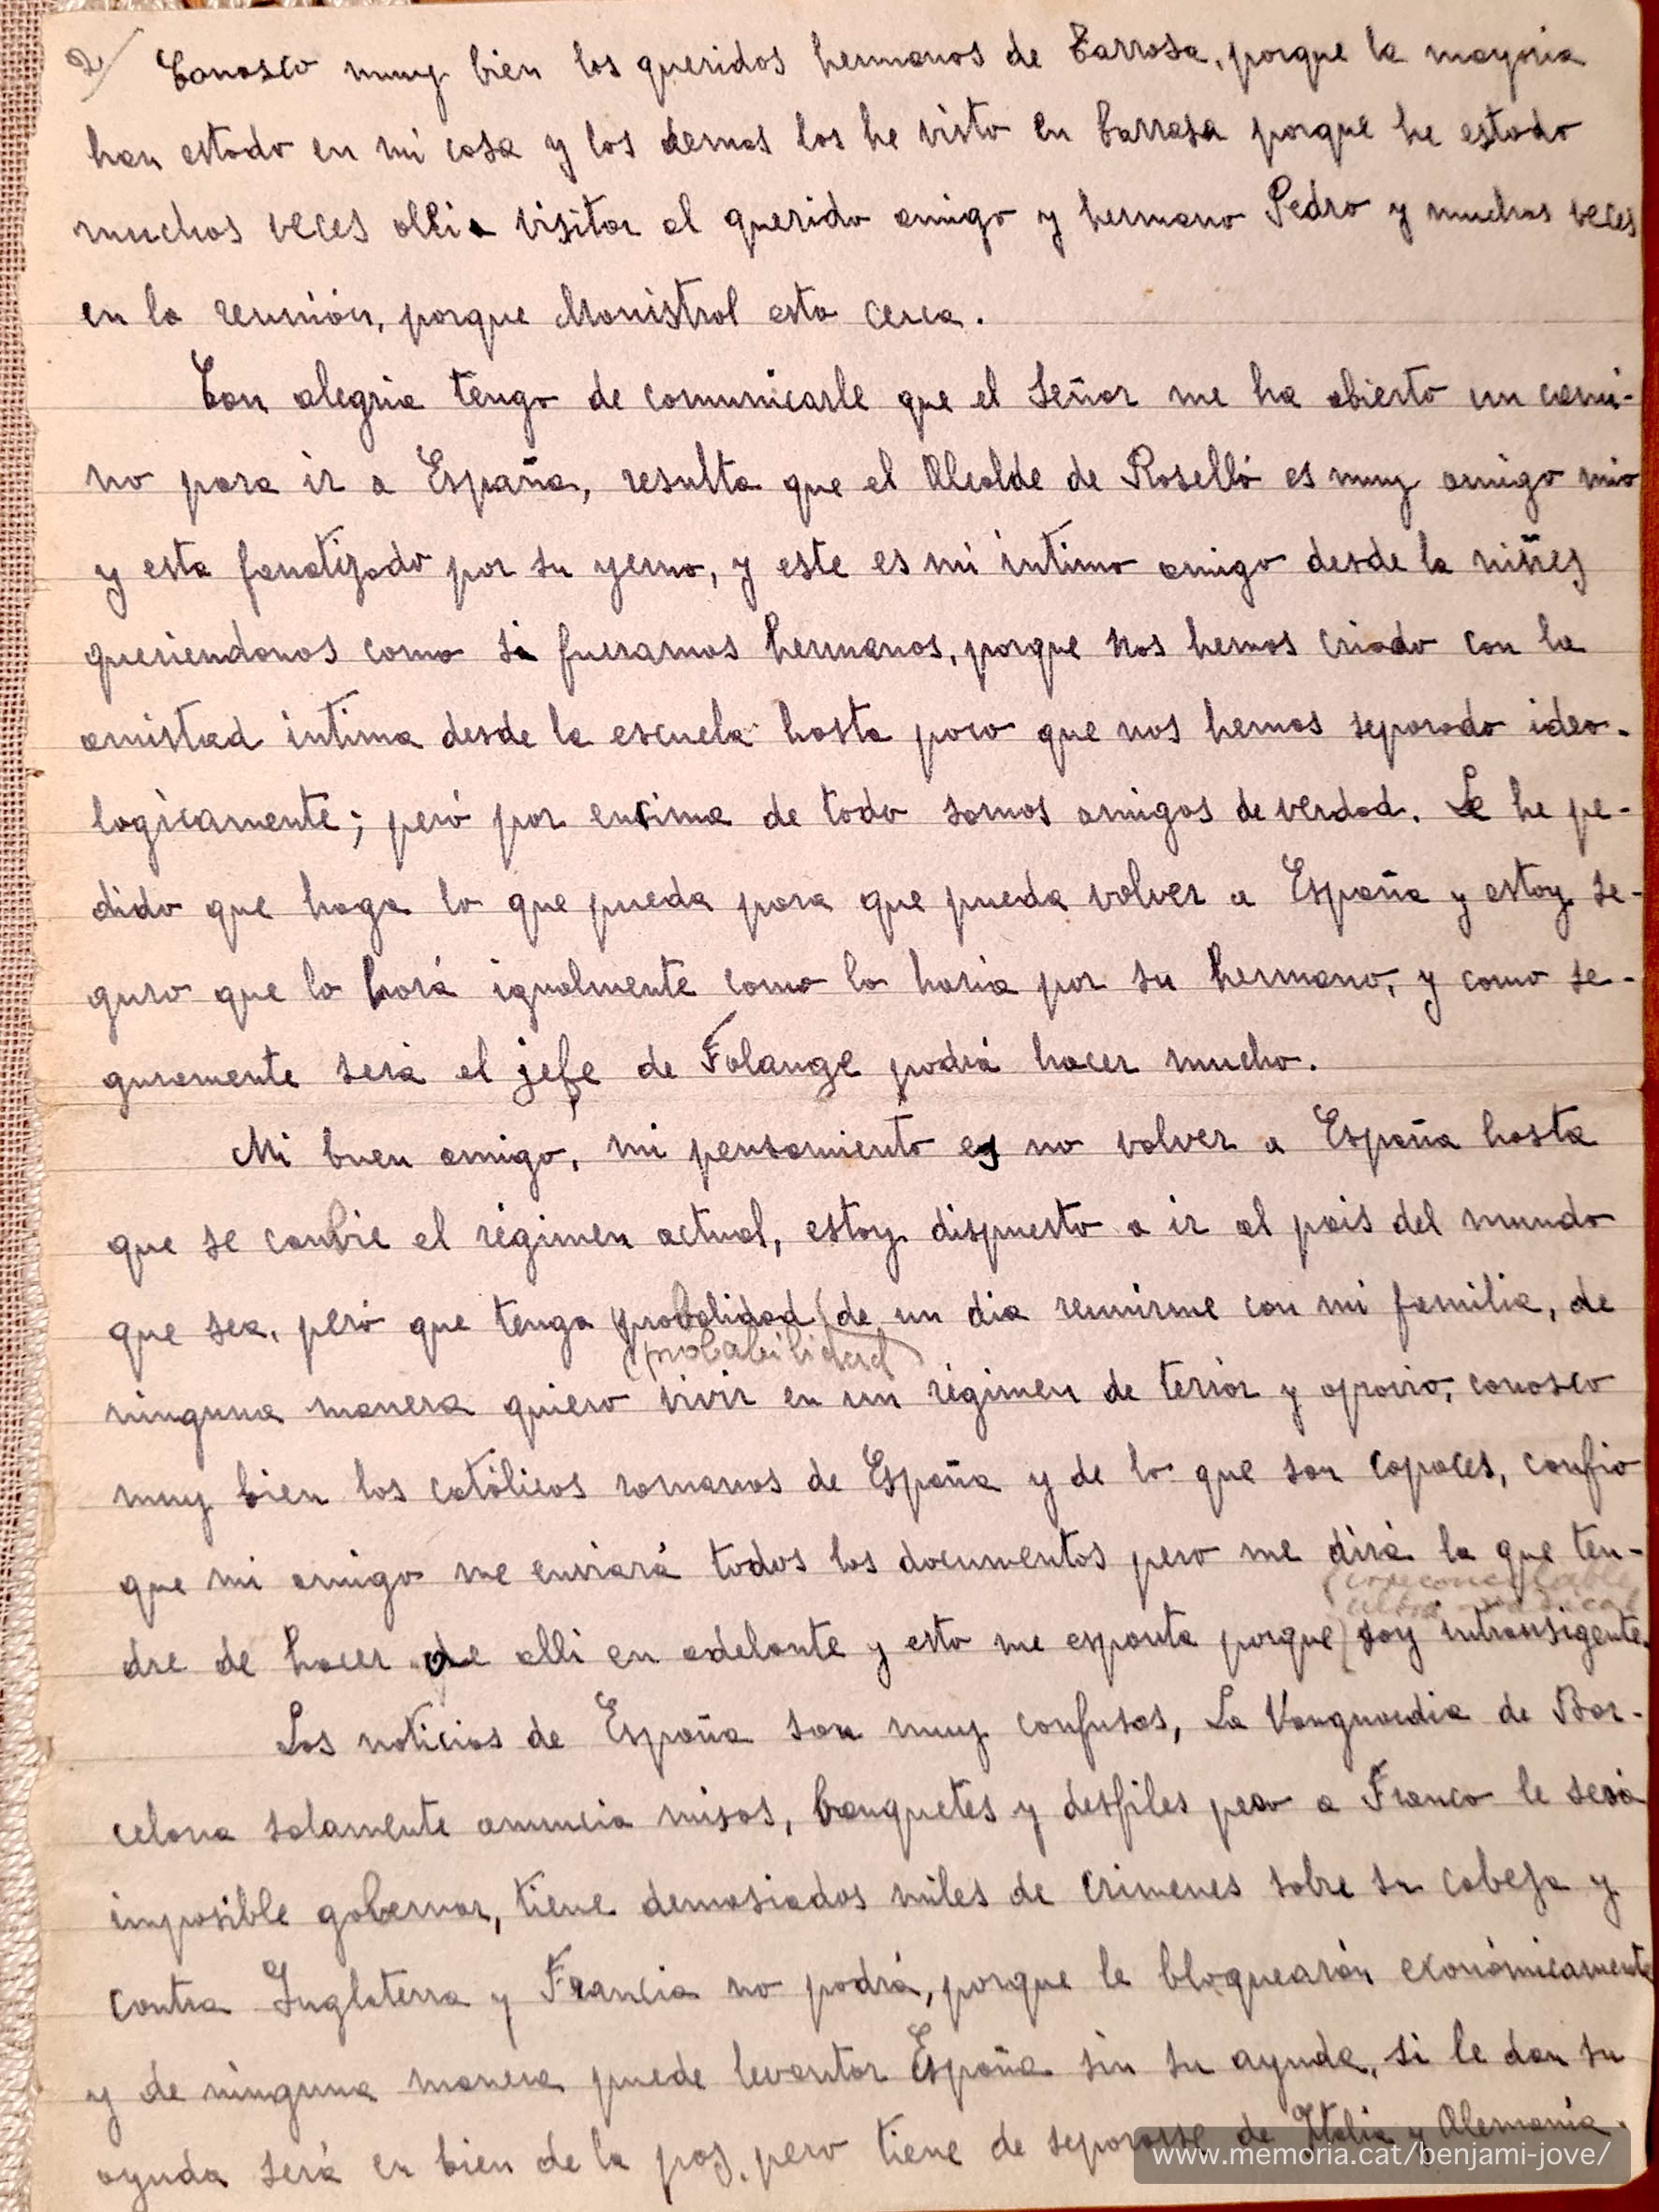 2/ Conosco muy bien los queridos hermanos de Tarrasa, porque la mayoria
han estado en mi casa y los demas los he visto en Tarrasa porque he estado
muchas veces alli a visitar al querido amigo y hermano Pedro y muchas veces
en la reunión, porque Monistrol esta cerca.
Con alegria tengo de comunicarle que el Señor me ha abierto un cami-
no para ir a España, resulta que el Alcalde de Roselló es muy amigo mio
y esta fanatizado por su yerno, y este es mi intimo amigo desde la niñez
queriendonos como si fueramos hermanos, porque nos hemos criado con la
amistad intima desde la escuela hasta poco que nos hemos separado ideo-
logicamente; peró por encima de todo somos amigos de verdad. Le he pe-
dido que haga lo que pueda para que pueda volver a España y estoy se-
guro que lo hará igualmente como lo haria por su hermano, y como se-
guramente será el jefe de Falange podrá hacer mucho.
Mi buen amigo, mi pensamiento es no volver a España hasta
que se canbie el régimen actual, estoy dispuesto a ir al pais del mundo
que sea, peró que tenga (probalidad) de un dia reunirme con mi familia, de
(probabilidad)
ninguna manera quiero vivir en un régimen de terror y oprovio, conosco
muy bien los católicos romanos de España y de lo que son capaces, confio
que mi amigo me enviará todos los documentos pero me dirá la que ten-
(irreconciliable
ultra-radical
dre de hacer de alli en adelante y esto me espanta porque (soy intransigente.
Las noticias de España son muy confusas, La Vanguardia de Bar-
celona solamente anuncia misas, banquetes y desfiles pero a Franco le será
imposible gobernar, tiene demasiados miles de crimenes sobre su cabeza y
contra Inglaterra y Francia no podrá, porque le bloquearán económicamente
y de ninguna manera puede levantar España sin su ayuda, si le dan su
ayuda será en bien de la paz, pero tiene de separarse de Italia y Alemania.
www.memoria.cat/benjami-jove/